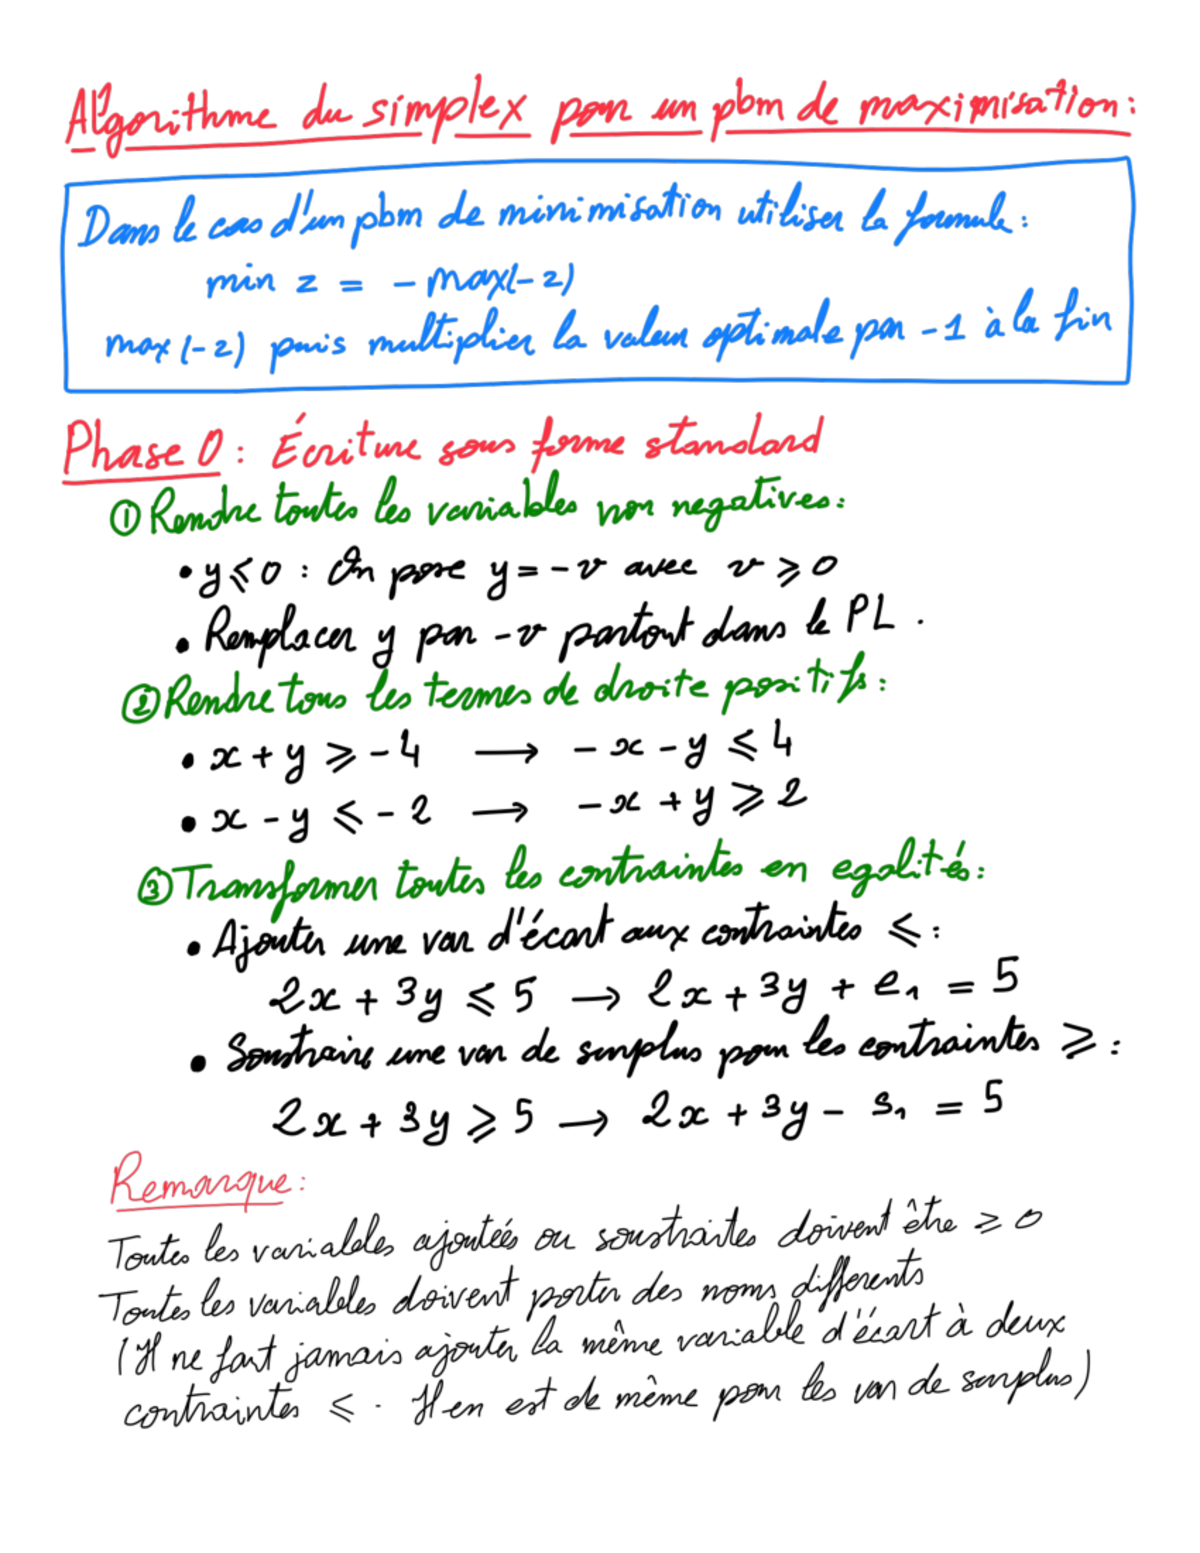 Algorithme du simplex pour un pbm de maximisation :
Dans le cas d'un pbm de minimisation utiliser la formule :
min z = - max(-z)
max (-z) puis multiplier la valeur optimale par -1 à la fin
Phase 0 : Écriture sous forme standard
① Rendre toutes les variables non negatives :
• y ⩽ 0 : On pose y = - v avec v ⩾ 0
• Remplacer y par -v partout dans le PL .
② Rendre tous les termes de droite positifs :
• x + y ⩾ - 4 ⟶ - x - y ⩽ 4
• x - y ⩽ - 2 ⟶ - x + y ⩾ 2
③ Transformer toutes les contraintes en egalités :
• Ajouter une var d'écart aux contraintes ⩽ :
2x + 3y ⩽ 5 → 2x + 3y + e₁ = 5
• Soustraire une var de surplus pour les contraintes ⩾ :
2x + 3y ⩾ 5 → 2x + 3y - s₁ = 5
Remarque :
Toutes les variables ajoutéés ou soustraites doivent être ⩾ 0
Toutes les variables doivent porter des noms differents
(Il ne faut jamais ajouter la même variable d'écart à deux
contraintes ⩽ . Il en est de même pour les var de surplus)